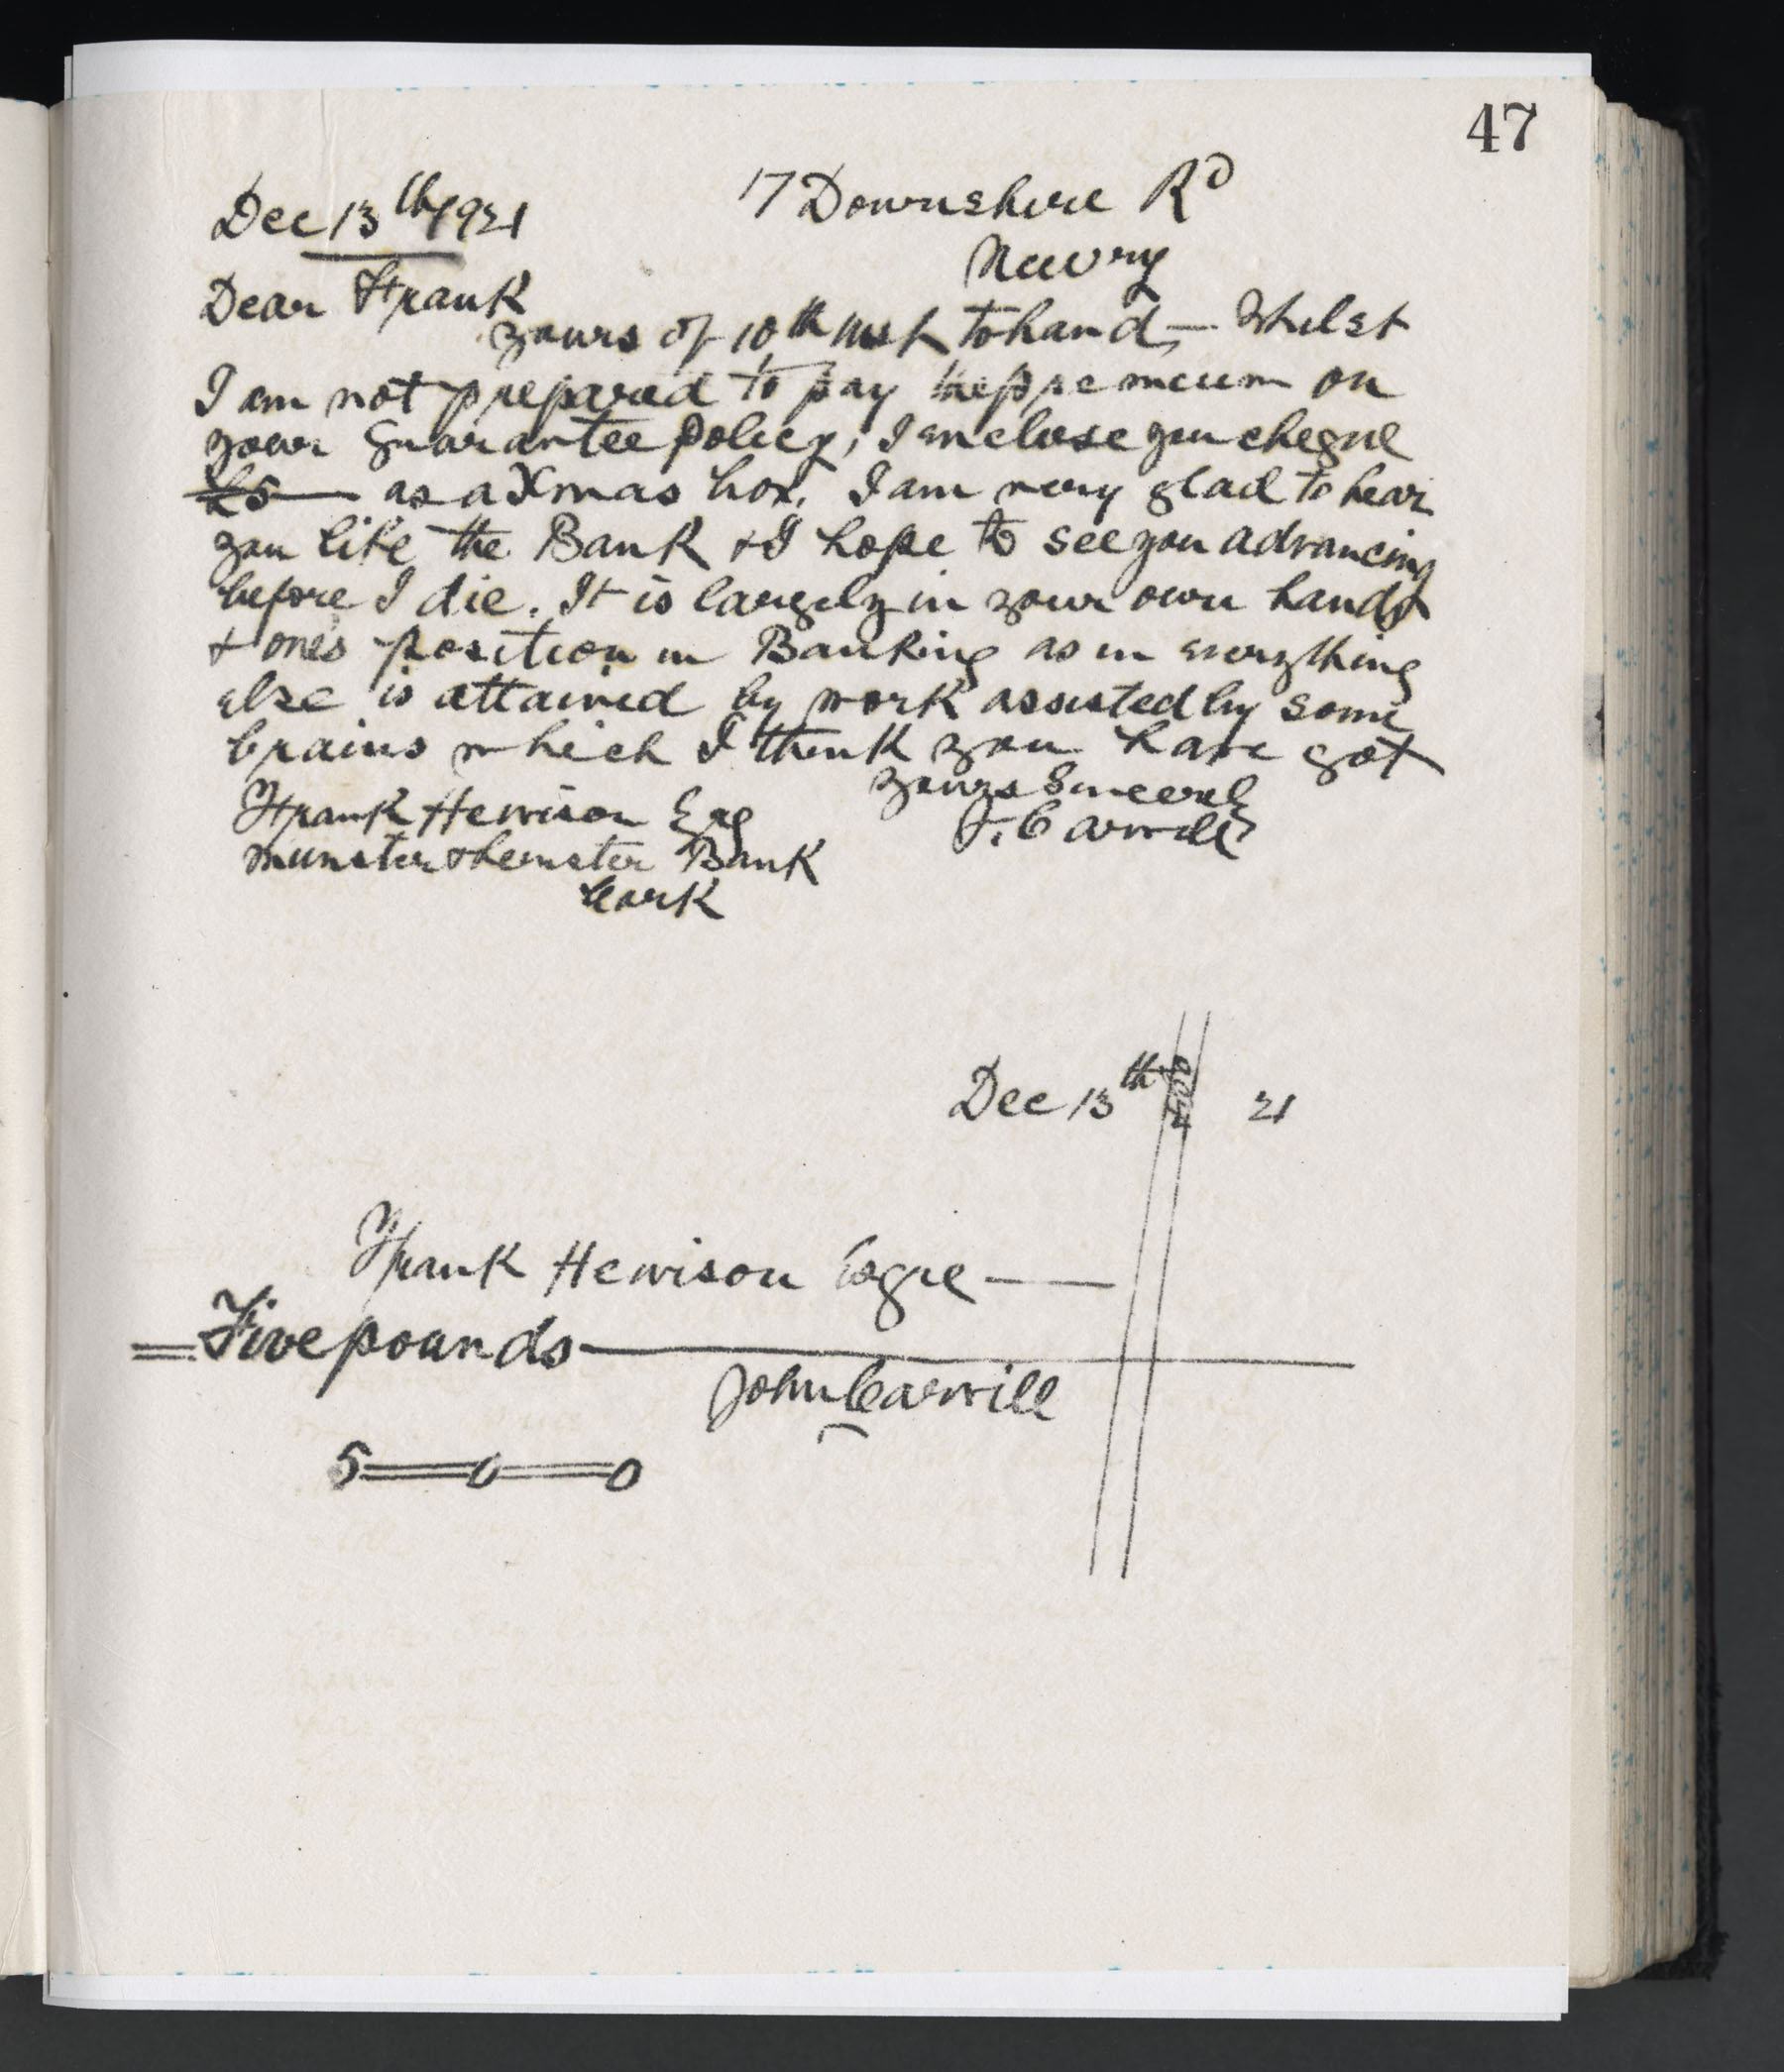 47
17 Downshire Rd
Dec 13th 1921
Newry
Dear Frank
yours of 10th inst to hand, — Whilst
I am not prepared to pay the premium on
your Guarantee Policy, I enclose you cheque
£5 — as a Xmas box. I am very glad to hear
you like the Bank & I hope to see you advancing
before I die. It is largely in your own hands
& ones position in Banking as in everything
else is attained by work assisted by some
brains which I think you have got
yours Sincerely
J. Carvill
Frank Hewison Esq
Munster & Leinster Bank
Cork
Dec 13th 21
Frank Hewison Esqre —
= Five pounds —
John Carvill
5 = 0 = 0